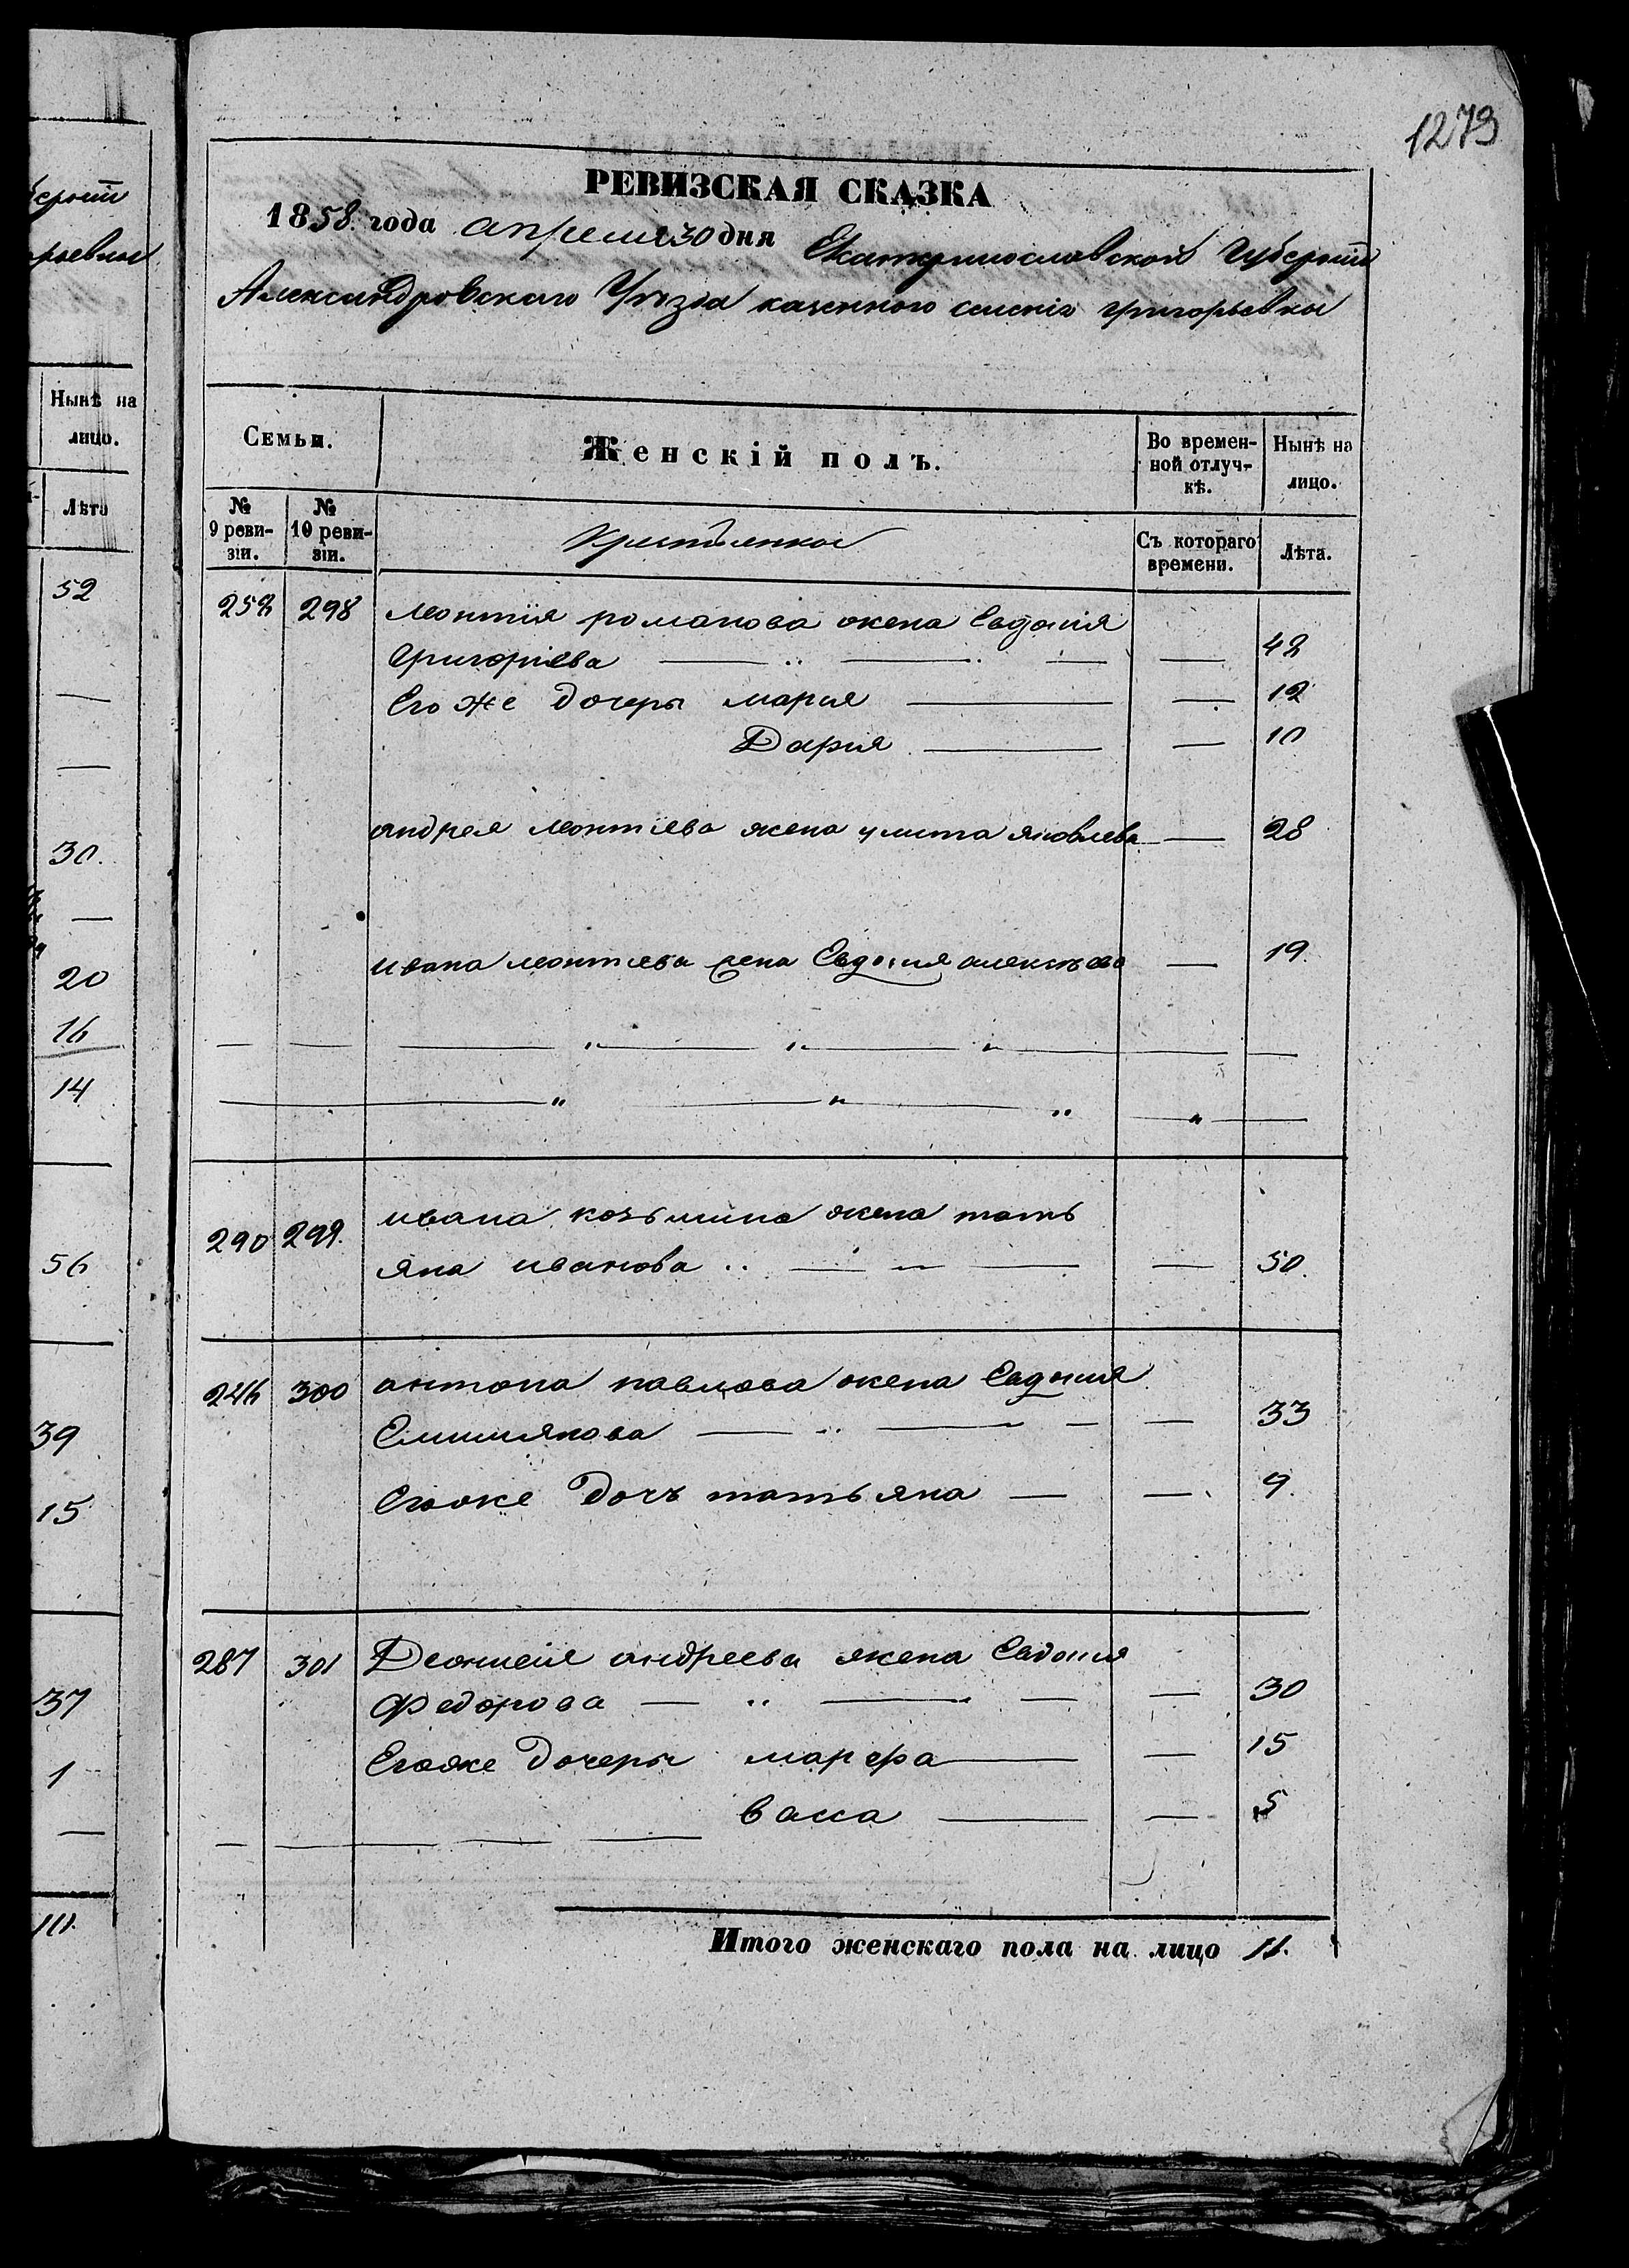 1273
РЕВИЗСКАЯ СКАЗКА
1858 года апреля 30 дня Екатеринославской Губернiи
Александровскаго Уѣзда казенного селенiя григорьевки
Семьи.
Женскiй полъ.
Во времен-
ной отлуч-
кѣ.
Нынѣ на
лицо.
№
9 реви-
зiи.
№
10 реви-
зiи.
Крестьянки
Съ котораго
времени.
Лѣта.
298 леонтiя романова жена Евдокiя
Григорiева — — — — 42
Его же дочеры марья — — 12
Дарья — — 10
андрея леонтiева жена улита яковлева — 28
ивана леонтиева жена Евдокия алексѣева — 19
290 299 ивана козьмина жена тать
яна иванова — — — — 50
246 300 антона павлова жена Евдокия
Емилиянова — — — — 33
Егоже дочъ татьяна — — 9
287 301 андреева жена Евдокия
Федорова — — — — 30
Егоже дочеры марфа — — 15
васса — — 5
Итого женскаго пола на лицо 11.
Нынѣ на
лицо.
Лѣта
52
—
—
30.
—
20
16
14
56
39
15
37
1
—